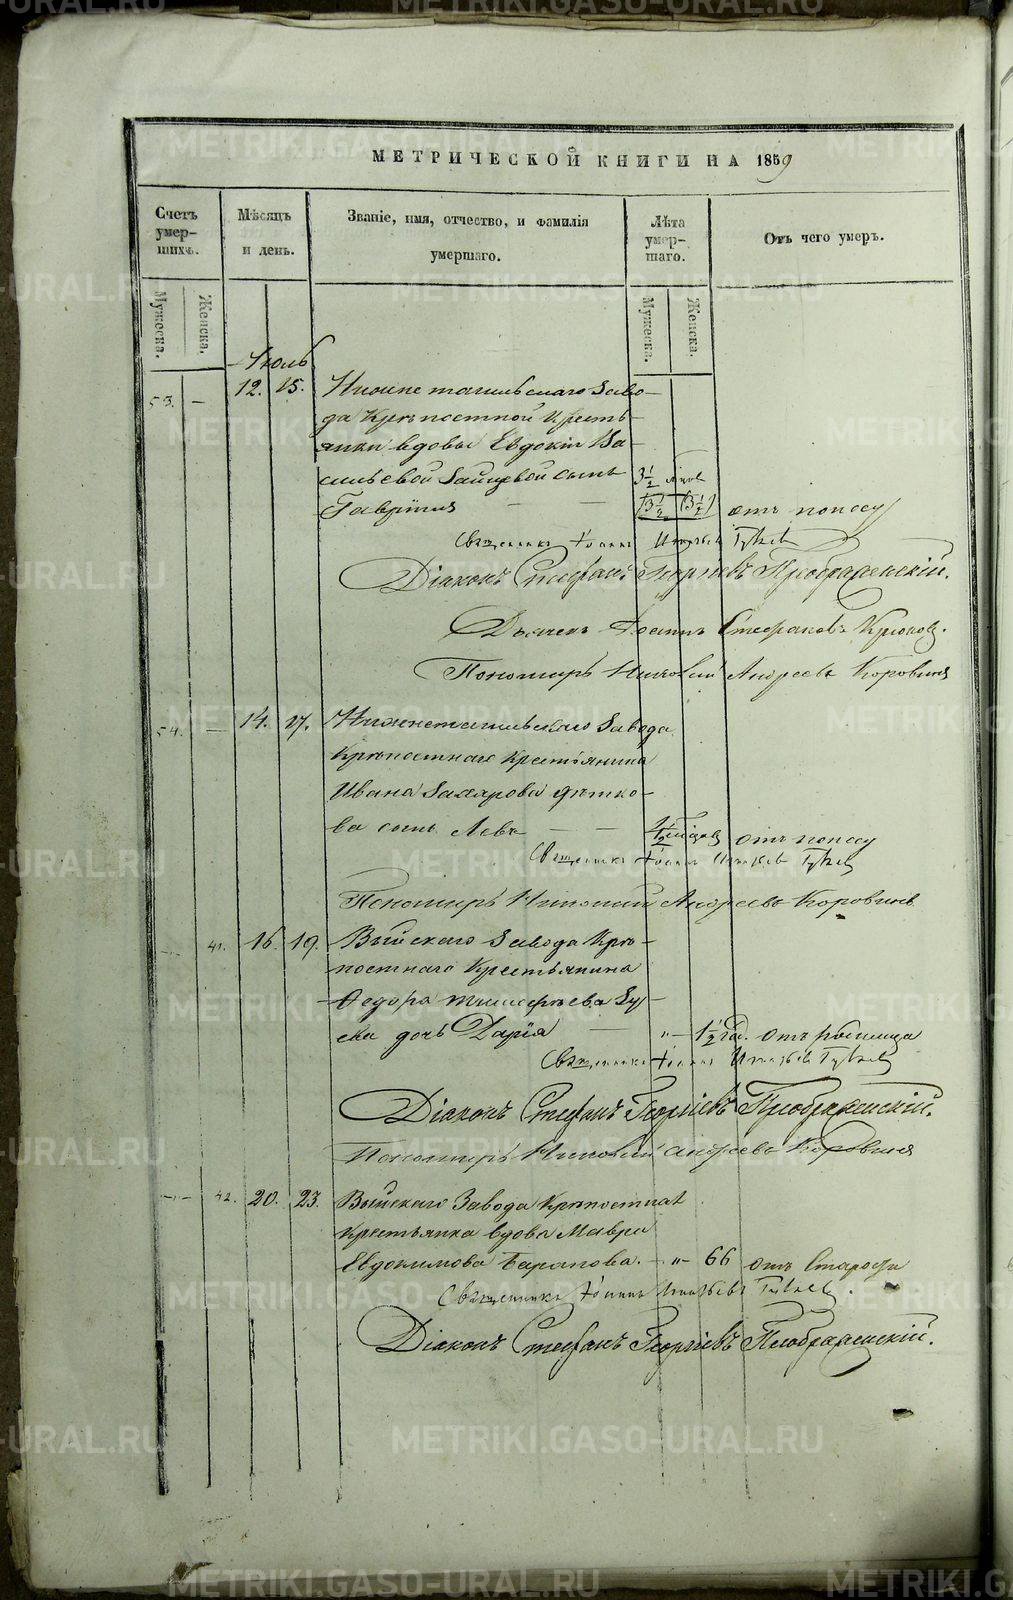 МЕТРИЧЕСКОЙ КНИГИ НА 1859
Счетъ умер-шихъ.
Мѣсяцъ и день.
Званіе, имя, отчество, и фамилія умершаго.
Лѣта умер-шаго.
Отъ чего умеръ.
Мужеска.
Женска.
Мужеска.
Женска.
Іюль
53. — 12. 15. Нижнетагильскаго Заво-
да Крѣпостной Кресть-
янки вдовы Евдокіи Ва-
сильевой Зайцевой сынъ 3½
Гавріилъ — — (3½) (3½) отъ поносу
Священникъ Іоаннъ
Діаконъ Стефанъ Георгіевъ Преображенскій.
Дьячекъ Іоаннъ Стефановъ Крюковъ.
Пономарь Николай Андреевъ Коровинъ
54. — 14. 17. Нижнетагильскаго Завода
Крѣпостнаго Крестьянина
Ивана Захарова
ва сынъ Левъ — — отъ поносу
Священникъ Іоаннъ
Пономарь Николай Андреевъ Коровинъ
— 41. 16. 19. Выйскаго Завода Крѣ-
постнаго Крестьянина
Ѳедора Тимофѣева Зу-
ева дочь Дарія — „ — 1½ год. отъ родимца
Священникъ Іоаннъ
Діаконъ Стефанъ Георгіевъ Преображенскій.
Пономарь Николай Андреевъ Коровинъ
— 42. 20. 23. Выйскаго Завода Крѣпостная
Крестьянка вдова Мавра
Евдокимова Баранова. — „ — 66 отъ Старости
Священникъ Іоаннъ
Діаконъ Стефанъ Георгіевъ Преображенскій.
METRIKI.GASO-URAL.RU